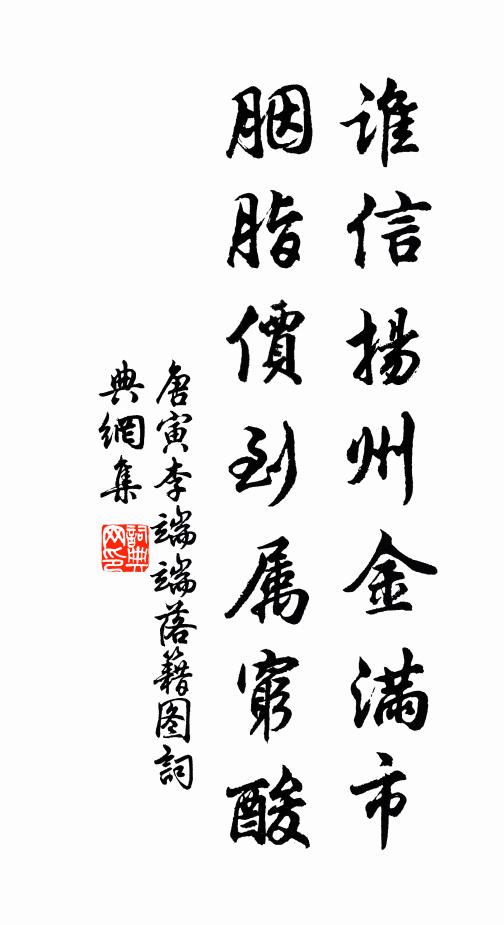 誰信揚州金滿市
胭脂價到属窮酸
唐寅李端端落籍图詞
典網集
詞典
网印